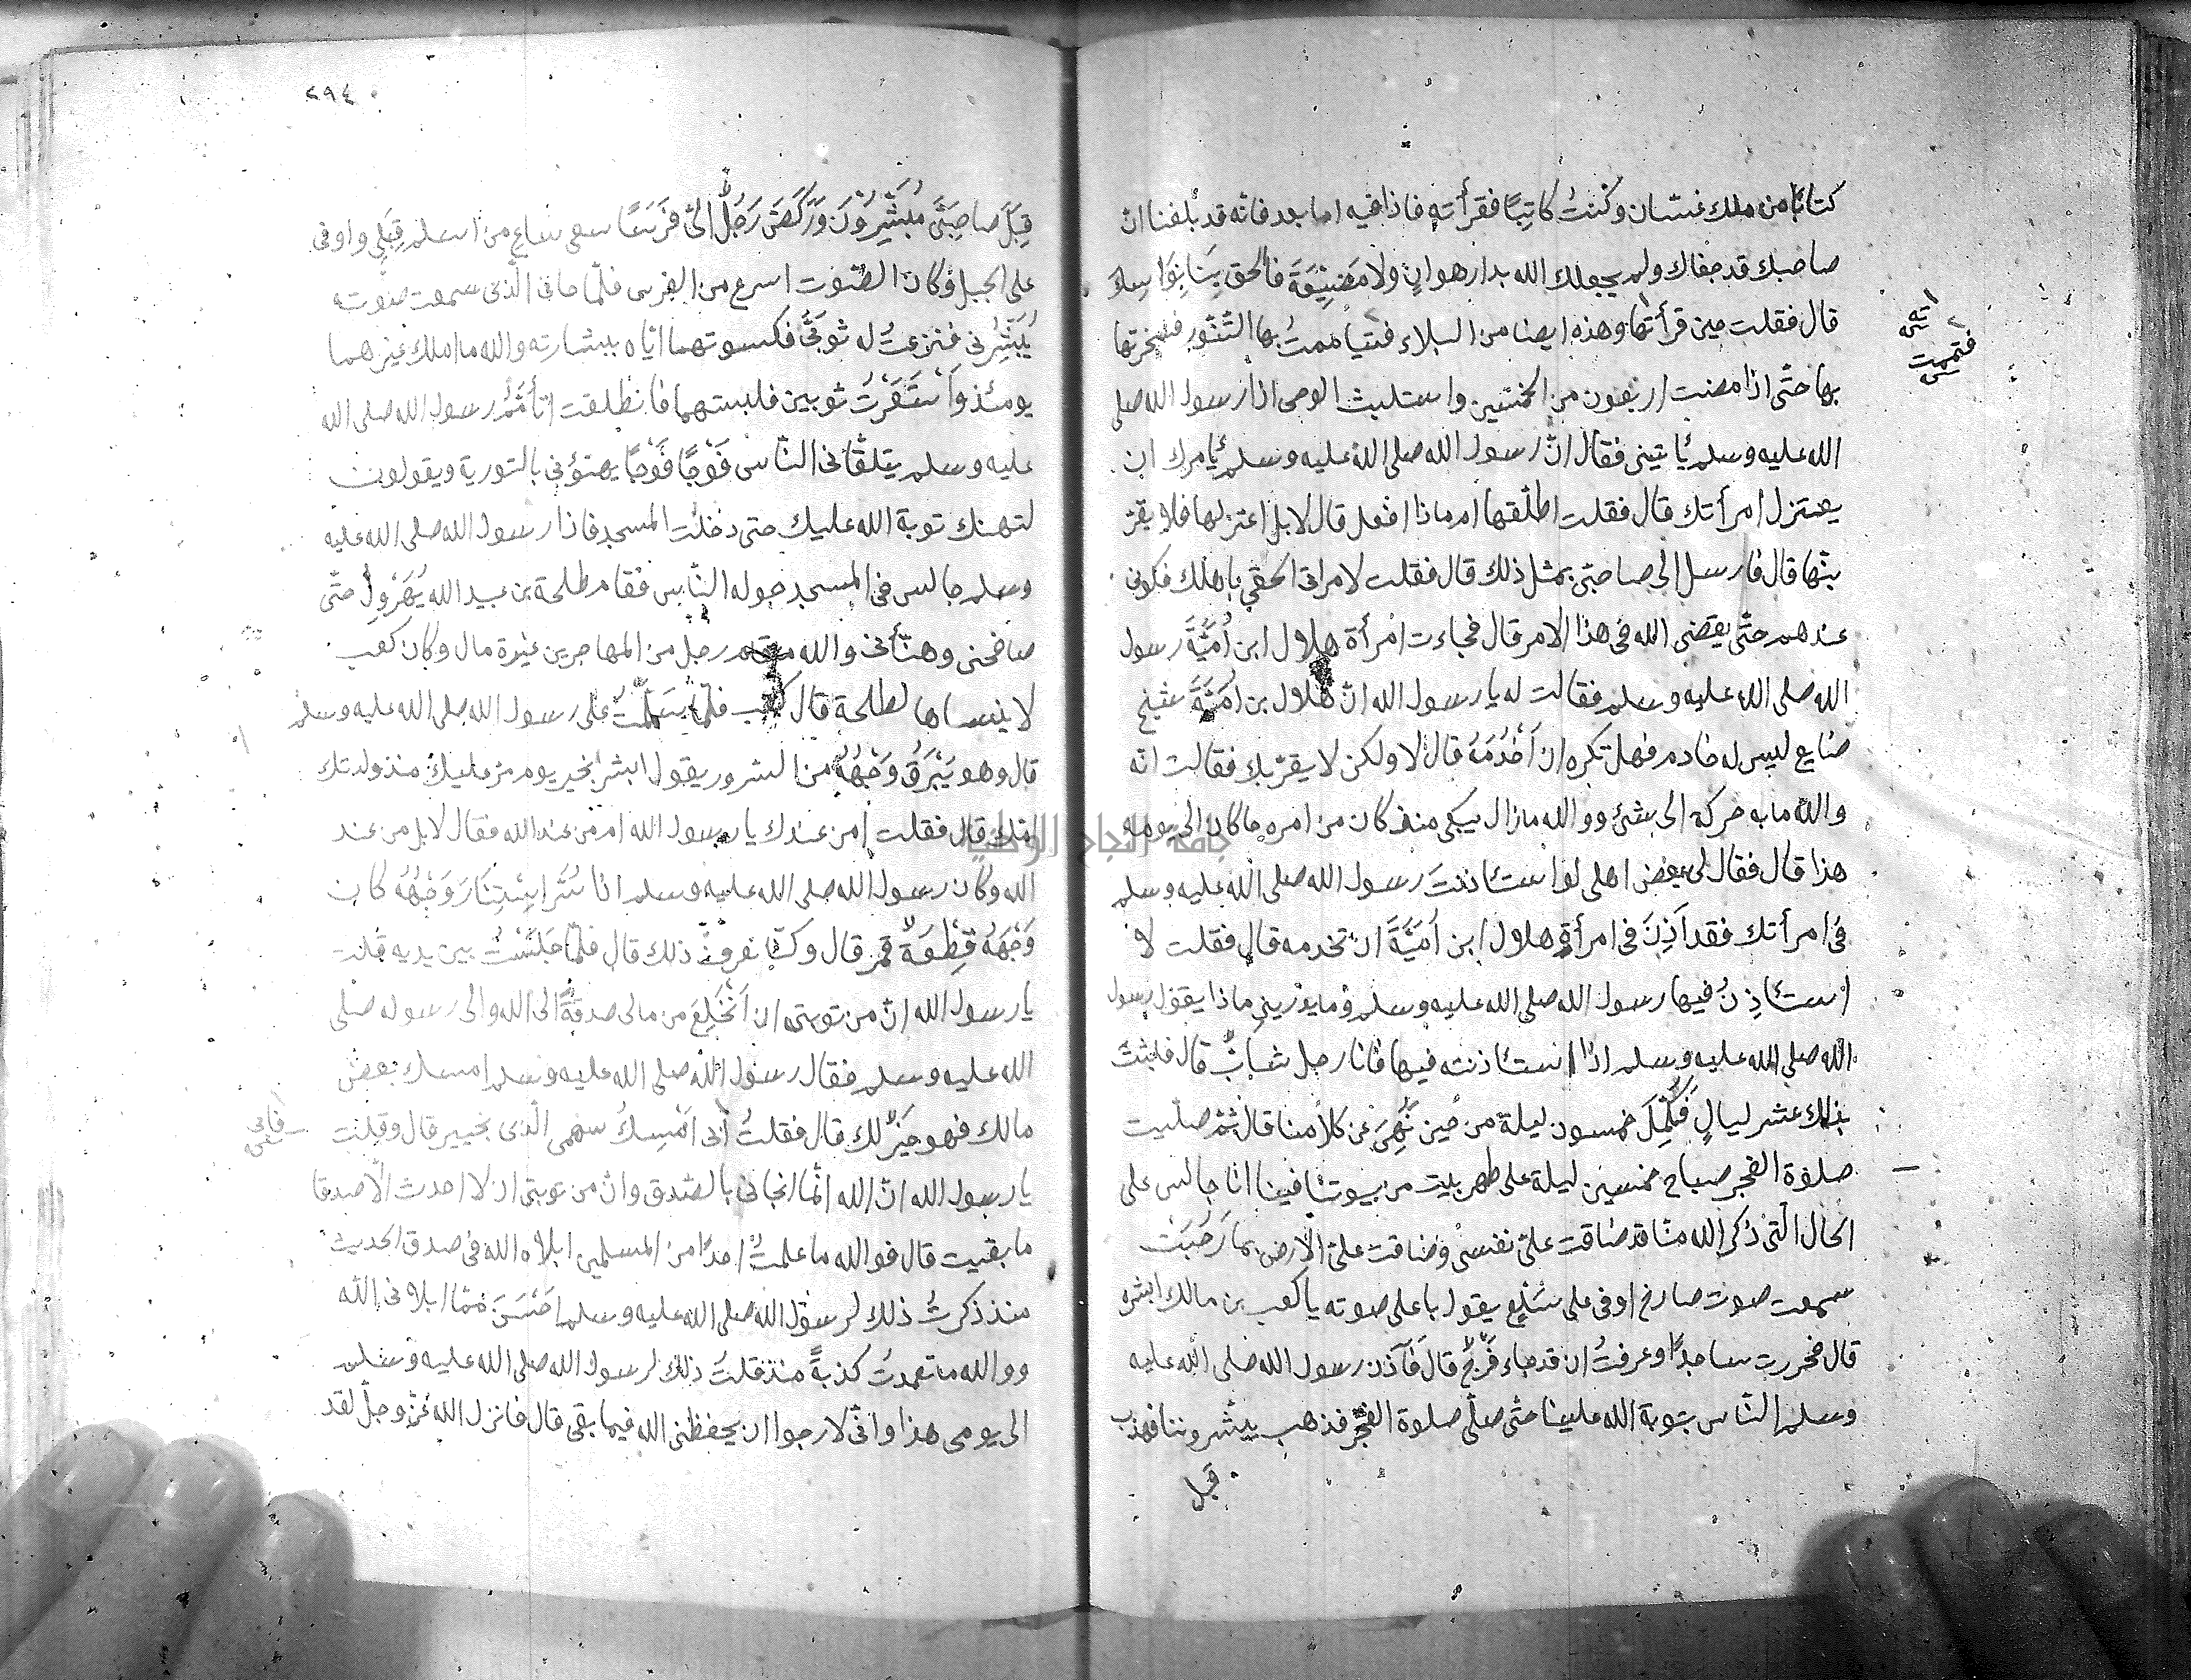 كتابًا من ملك غسان وكنتُ كاتبًا فقرأته فاذا فيه اما بعد فانه قد بلغنا انّ
صاحبك قد جفاك ولم يجعلك الله بدار هوانٍ ولا مَضْيِعَةَ فالحق بِنَا نواسِك
قال فقلت حين قرأتها وهذه ايضا من البلاء فتياممتُ بها التنّور فسجرتها
بها حتّى اذا مضت اربعون من الخمسين واستلبث الوحى اذا رسول الله صلى
الله عليه وسلم يأتيني فقال انّ رسول الله صلى الله عليه وسلم يأمرك ان
يعتزل امرأتك قال فقلت اطلّقها ام ماذا افعل قال لا بل اعتزلها فلا يقر
بنّها قال فارسل الى صاحبىّ بمثل ذلك قال فقلت لامراتى الحقى باهلك فكونى
عندهم حتّى يقضى الله فى هذا الامر قال فجاءت امرأة هلال ابن أُمَيَّةَ رسول
الله صلى الله عليه وسلم فقالت له يا رسول الله انّ هلال بن اُمَيَّةَ شيخ
ضايع ليس له خادم فهل تكره ان اَخْدُمَهُ قال لا ولكن لا يقربّك فقالت انّه
والله ما به حركة الى شئ ووالله مازال يبكى منذ كان من امره ما كان الى يومه
هذا قال فقال لى بعض اهلى لو استأذنتَ رسول الله صلى الله عليه وسلم
فى امرأتك فقد اَذِنَ فى امرأة هلال ابن اُمَيَّةَ ان تخدمه قال فقلت لا
استأذِنُ فيها رسول الله صلى الله عليه وسلم وما يدرينى ماذا يقول رسول
الله صلى الله عليه وسلم اذا استأذنته فيها وانا رجل شابٌّ قال فلبثتُ
بذلك عشر ليالٍ فَكَمُلَ خمسون ليلة من حين نُهِىَ عن كلامنا قال ثمّ صلّيت
صلوة الفجر صباح خمسين ليلة على ظهر بيت من بيوتنا فبينا انا جالس على
الحال الّتى ذكر الله منّا قد ضاقت علىّ نفسى وضاقت علىّ الارض بما رَحُبَتْ
سمعت صوت صارخ اوفى على سَلْعٍ يقول باعلى صوته يا كعب بن مالك ابشر
قال فخررت ساجدًا وعرفتُ ان قد جاء فَرَجٌ قال فآذن رسول الله صلى الله عليه
وسلم النّاس بتوبة الله علينا حتّى صلّى صلوة الفجر فذهب يبشروننا فذهب
قبل
فتيممت
٢٩٤
قِبَلَ صاحِبَىَّ مُبَشِّرُوْنَ وَرَكَضَ رَجُلٌ الىّ فَرَسًا سعى ساعٍ من اسلم قِبَلِى واوفى
على الجبل وكان الصّوت اسرع من الفرس فلمّا جاءنى الّذى سمعت صوته
يُبَشِّرُنى فنزعتُ له ثوبَىَّ فكسوتهما ايّاه ببشارته والله ما املك غيرهما
يومئذ وَاسْتَعَرْتُ ثوبين فلبستهما فانطلقت اتأمّمُ رسول الله صلى الله
عليه وسلم يتلقّانى النّاس فَوْجًا فَوْجًا يهنؤنى بالتوبة ويقولون
لتهنك توبة الله عليك حتى دخلت المسجد فاذا رسول الله صلى الله عليه
وسلم جالس فى المسجد حوله النّاس فقام طلحة بن عبيد الله يُهَرْوِلُ حتّى
صافحنى وهنّأنى والله ما قام رجل من المهاجرين غيره قال وكان كعب
لا ينساها لطلحة قال كعب فلمّا سَلَّمْتُ على رسول الله صلى الله عليه وسلم
قال وهو يَبْرَقُ وَجْهُهُ من السرور يقول ابشر بخير يوم مر عليك منذ ولدتك
امّك قال فقلت امن عندك يا رسول الله ام من عند الله فقال لا بل من عند
الله وكان رسول الله صلى الله عليه وسلم اذا سُرَّ استِنَارَ وَجْهُهُ كان
وَجْهَهُ قِطْعَةُ قمر قال وكنّا نعرف ذلك قال فلمّا جَلَسْتُ بين يديه قلت
يا رسول الله انّ من توبتى ان اَنْخَلِعَ من مالى صدقةً الى الله والى رسوله صلى
الله عليه وسلم فقال رسول الله صلى الله عليه وسلم امسك بعض
مالك فهو خَيْرٌ لك قال فقلتُ أنى اُمْسِكُ سهمى الّذى بخيبر قال وقلت
فانى
يا رسول الله انّ الله انّما انجانى بالصّدق وانّ من توبتى ان لا احدث الّا صدقا
ما بقيت قال فوالله ما علمتُ احدًا من المسلمين ابلاه الله فى صدق الحديث
منذ ذكرتُ ذلك لرسول الله صلى الله عليه وسلم احْسَنَ ممّا ابلانى الله
ووالله ما تعمدتُ كذبةً منذ قلتُ ذلك لرسول الله صلى الله عليه وسلم
الى يومى هذا وانّى لارجوا ان يحفظنى الله فيما بقى قال فانزل الله عزّ وجلّ لقد
جامعة النجاح الوطنية